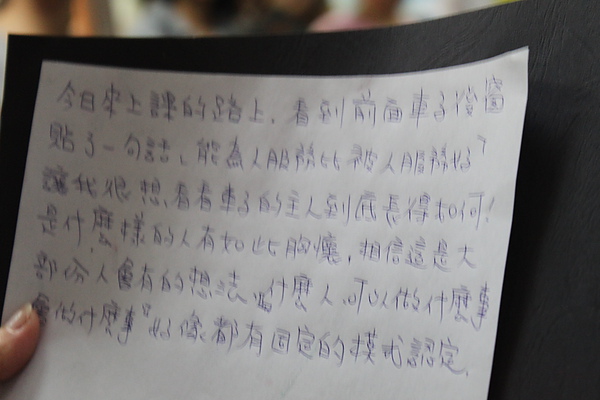 今日來上課的路上，看到前面車子後窗
貼了一句話、能為人服務比被人服務好"
讓我很想看看車子的主人到底長得如何!
是什麼樣的人有如此胸懷，相信這是大
部份人會有的想法，"什麼人可以做什麼事
會做什麼事"好像都有固定的模式認定.